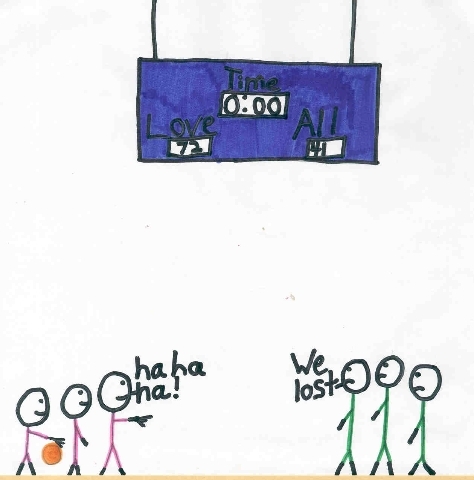 Time
0:00
Love All
72 41
ha ha
ha!
We
lost